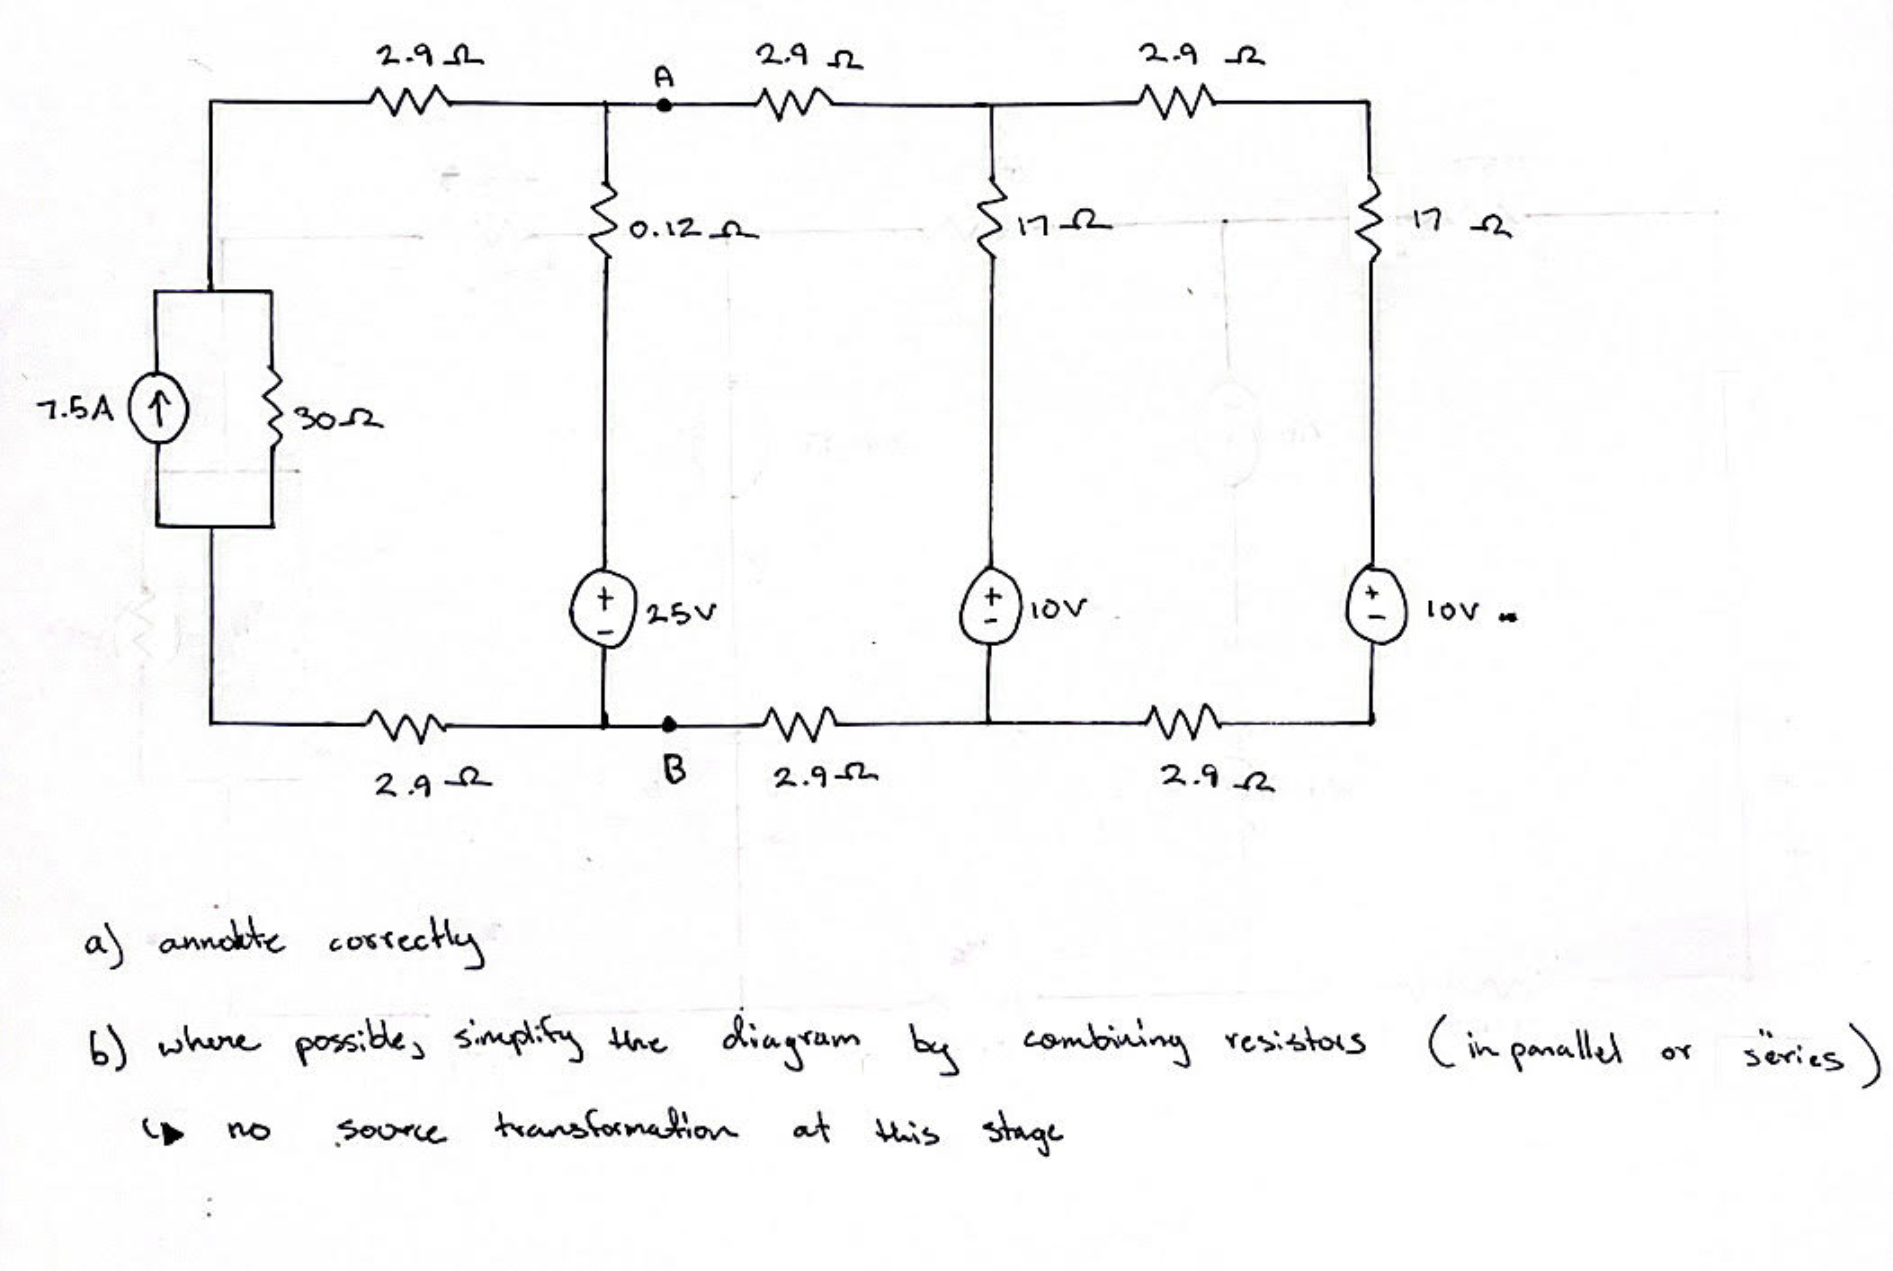 2.9 Ω 2.9 Ω 2.9 Ω
A
0.12 Ω 17 Ω 17 Ω
7.5A 30Ω
+ - 25V + - 10V + - 10V
B
2.9 Ω 2.9 Ω 2.9 Ω
a) annotate correctly
b) where possible, simplify the diagram by combining resistors (in parallel or series)
↳ no source transformation at this stage